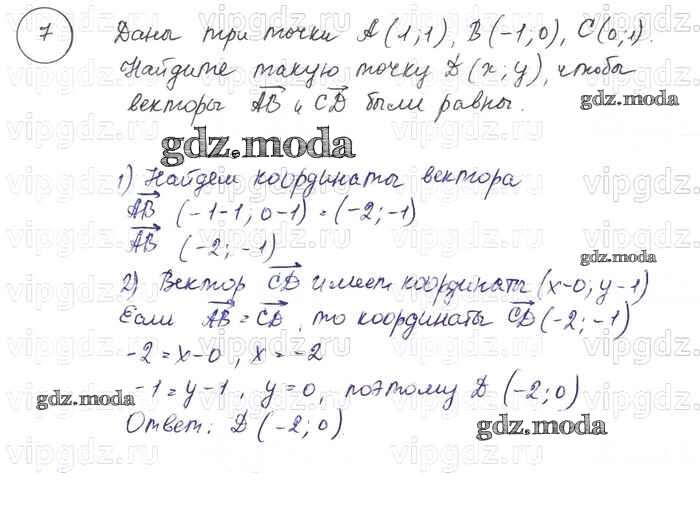 7 Даны три точки A(1;1), B(-1;0), C(0;1).
Найдите такую точку D(x;y), чтобы
векторы AB и CD были равны.
gdz.moda
gdz.moda
1) Найдем координаты вектора
AB (-1-1; 0-1) = (-2; -1)
AB (-2; -1)
gdz.moda
2) Вектор CD имеет координаты (x-0; y-1)
Если AB = CD, то координаты CD (-2; -1)
-2 = x-0, x = -2
-1 = y-1, y = 0, поэтому D (-2; 0)
gdz.moda
Ответ: D (-2; 0)
gdz.moda
vipgdz.ru